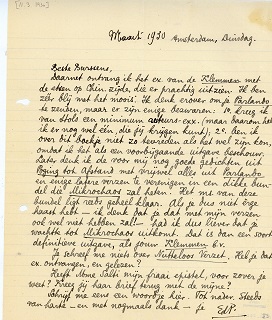 Maart 1930
Amsterdam, Dinsdag.
Beste Burssens,
Daarnet ontvang ik het ex. van de Klemmen met
de steen op Chin. zijde, die er prachtig uitzien. Ik ben
zéér blij met het moois. Ik denk erover om je Parlando
te zenden, maar er zijn enige bezwaren: 1e. kreeg ik
van Stols een minimum auteurs-exx. (maar daarom heb
ik er nog wel één, die jij krijgen kunt), 2e. ben ik
over dit boekje niet zo tevreden als het wel zijn kon,
omdat ik het als een voorbijgaande uitgave beschouw.
Later denk ik de voor mij nog goede gedichten uit
Poging tot Afstand met vrijwel alles uit Parlando
en enige verzen te verenigen in een dikke bun-
del die Mikrochaos zal heten. Het ms. van deze
bundel ligt reeds geheel klaar. Als je dus niet erge
haast hebt — ik denk dat je dat met mijn verzen
ook wel niet hebben zal! — had ik dus liever dat je
wachtte tot Mikrochaos uitkomt. Dat is dan een soort
definitieve uitgave, als jouw Klemmen b.v.
Je schreef me niets over Nutteloos Verzet. Heb je dat
ex. ontvangen, en gelezen?
Heeft Mme Salti mijn fraai epistel, voor zover je
weet? Kreeg zij haar brief terug met de mijne?
Schrijf me eens een woordje hier. Tot nader. Steeds
van harte — en met nogmaals dank — je EdP.